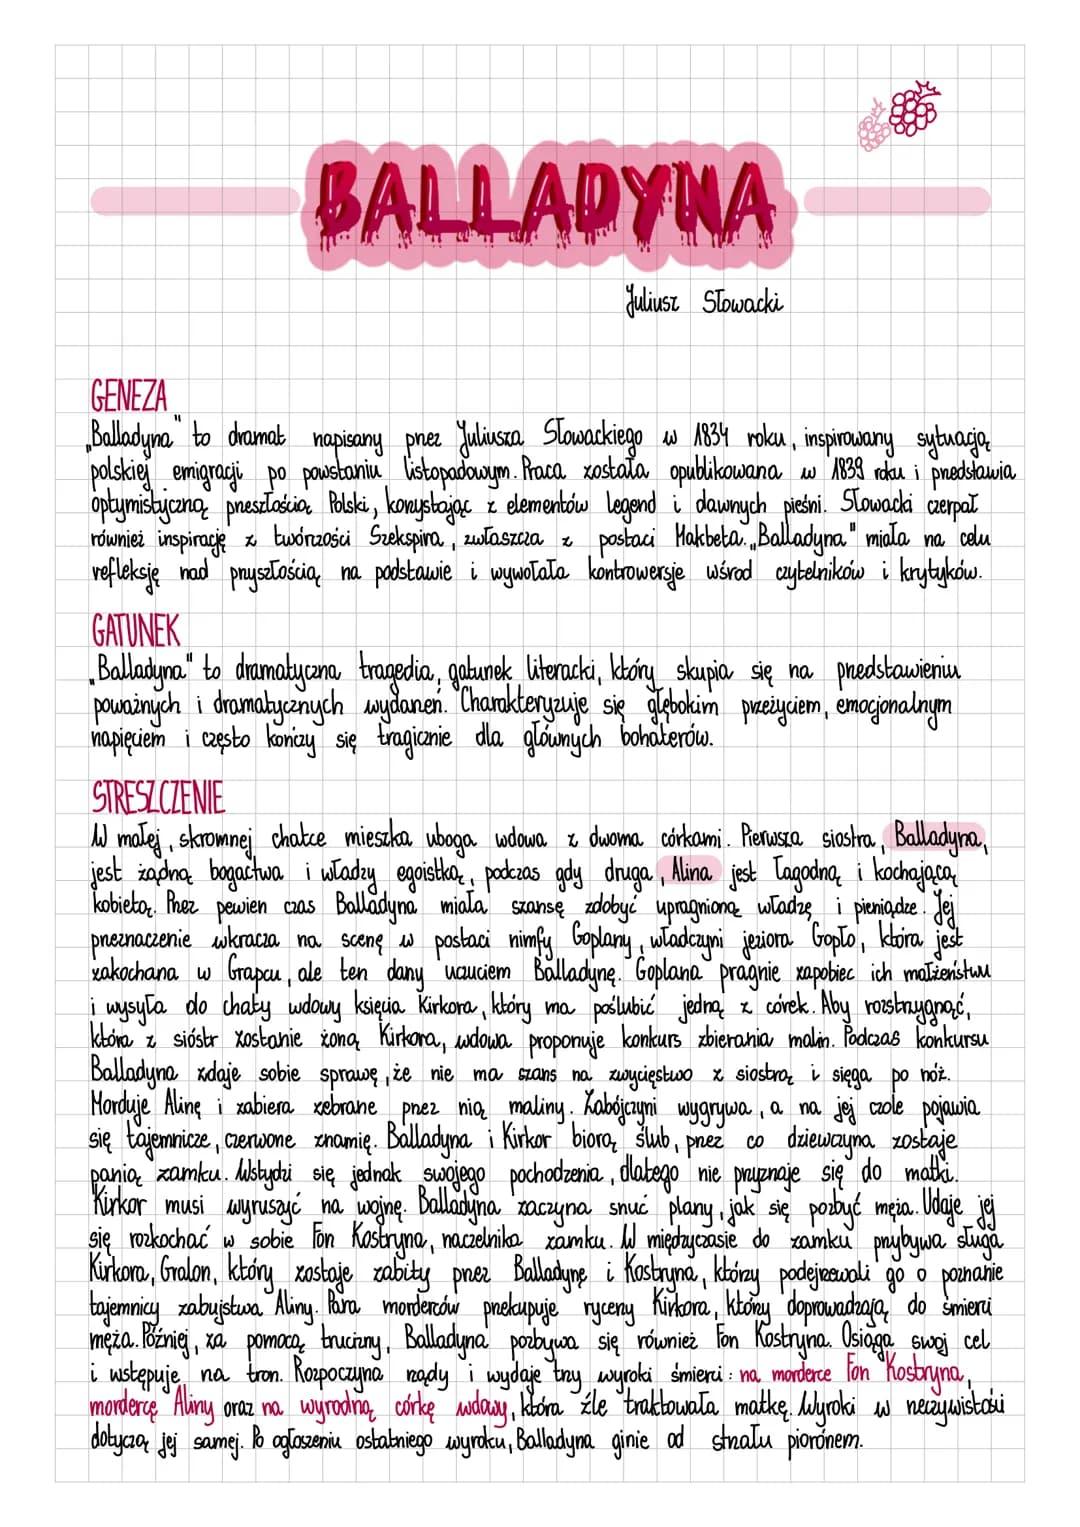 BALLADYNA
Juliusz Słowacki
GENEZA
„Balladyna" to dramat napisany przez Juliusza Słowackiego w 1834 roku, inspirowany sytuacją
polskiej emigracji po powstaniu listopadowym. Praca została opublikowana w 1839 roku i przedstawia
optymistyczną przeszłością Polski, korzystając z elementów legend i dawnych pieśni. Słowacki czerpał
również inspirację z twórzości Szekspira, zwłaszcza z postaci Makbeta. „Balladyna" miała na celu
refleksję nad przyszłością na podstawie i wywołała kontrowersje wśrod czytelników i krytyków.
GATUNEK
„Balladyna" to dramatyczna tragedia, gatunek literacki, który skupia się na przedstawieniu
poważnych i dramatycznych wydarzeń. Charakteryzuje się głębokim przeżyciem, emocjonalnym
napięciem i często kończy się tragicznie dla głównych bohaterów.
STRESZCZENIE
W małej, skromnej chatce mieszka uboga wdowa z dwoma córkami. Pierwsza siostra, Balladyna,
jest żądną bogactwa i władzy egoistką, podczas gdy druga, Alina jest łagodną i kochającą
kobietą. Przez pewien czas Balladyna miała szansę zdobyć upragnioną władzę i pieniądze. Jej
przeznaczenie wkracza na scenę w postaci nimfy Goplany, władczyni jeziora Gopło, która jest
zakochana w Grapcu, ale ten dany uczuciem Balladynę. Goplana pragnie zapobiec ich małżeństwu
i wysyła do chaty wdowy księcia Kirkora, który ma poślubić jedną z córek. Aby rozstrzygnąć,
która z sióstr zostanie żoną Kirkora, wdowa proponuje konkurs zbierania malin. Podczas konkursu
Balladyna zdaje sobie sprawę, że nie ma szans na zwycięstwo z siostrą i sięga po nóż.
Morduje Alinę i zabiera zebrane przez nią maliny. Zabójczyni wygrywa, a na jej czole pojawia
się tajemnicze, czerwone znamię. Balladyna i Kirkor biorą ślub, przez co dziewczyna zostaje
panią zamku. Wstydzi się jednak swojego pochodzenia, dlatego nie przyznaje się do matki.
Kirkor musi wyruszyć na wojnę. Balladyna zaczyna snuć plany, jak się pozbyć męża. Udaje jej
się rozkochać w sobie Fon Kostryna, naczelnika zamku. W międzyczasie do zamku przybywa sługa
Kirkora, Gralon, który zostaje zabity przez Balladynę i Kostryna, którzy podejrzewali go o poznanie
tajemnicy zabujstwa Aliny. Para morderców przekupuje rycerzy Kirkora, którzy doprowadzają do śmierci
męża. Później, za pomocą trucizny, Balladyna pozbywa się również Fon Kostryna. Osiąga swoj cel
i wstępuje na tron. Rozpoczyna rządy i wydaje trzy wyroki śmierci: na morderce Fon Kostryna,
mordercę Aliny oraz na wyrodną córkę wdowy, która źle traktowała matkę. Wyroki w rzeczywistości
dotyczą jej samej. Po ogłoszeniu ostatniego wyroku, Balladyna ginie od strzału piorónem.